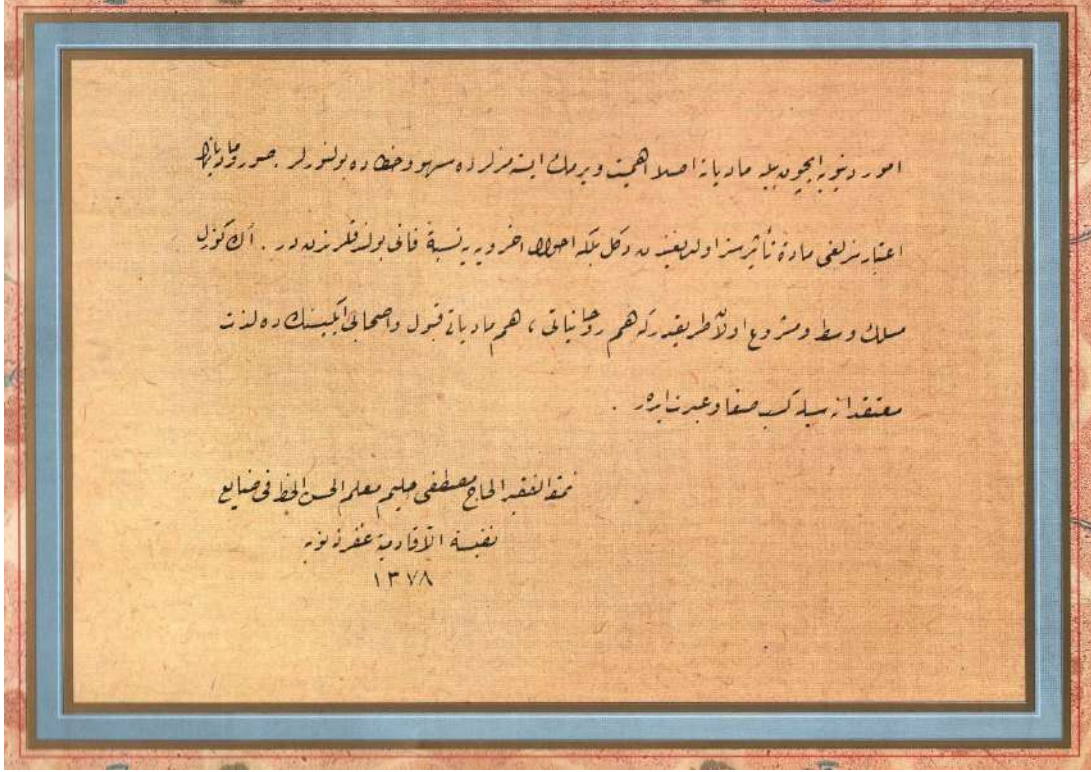 امور دنیویه ایچون بیله مادیاته اصلا اهمیت ویرمك ایسته‌مزلرده سهو و خطاده بولنورلر .
اعتبارسزلغی مادةً تأثیرسز اولدیغندن دكل بلكه احوال اخرویه‌یه نسبةً فانی بولندقلرندن در . اڭ كوزل
مسلك وسط و مشروع اولان طریقدركه هم روحانیاتی ، هم مادیاتی قبول و اصحابی ایكیسنڭ ده لذت
معتقدانه‌سیله كسب صفا و عبرت ایدر .
نمقه الفقیر الحاج مصطفی حلیم معلم الحسن الخط فی صنایع
نفیسة الآقادمیة غفر ذنوبه
١٣٧٨